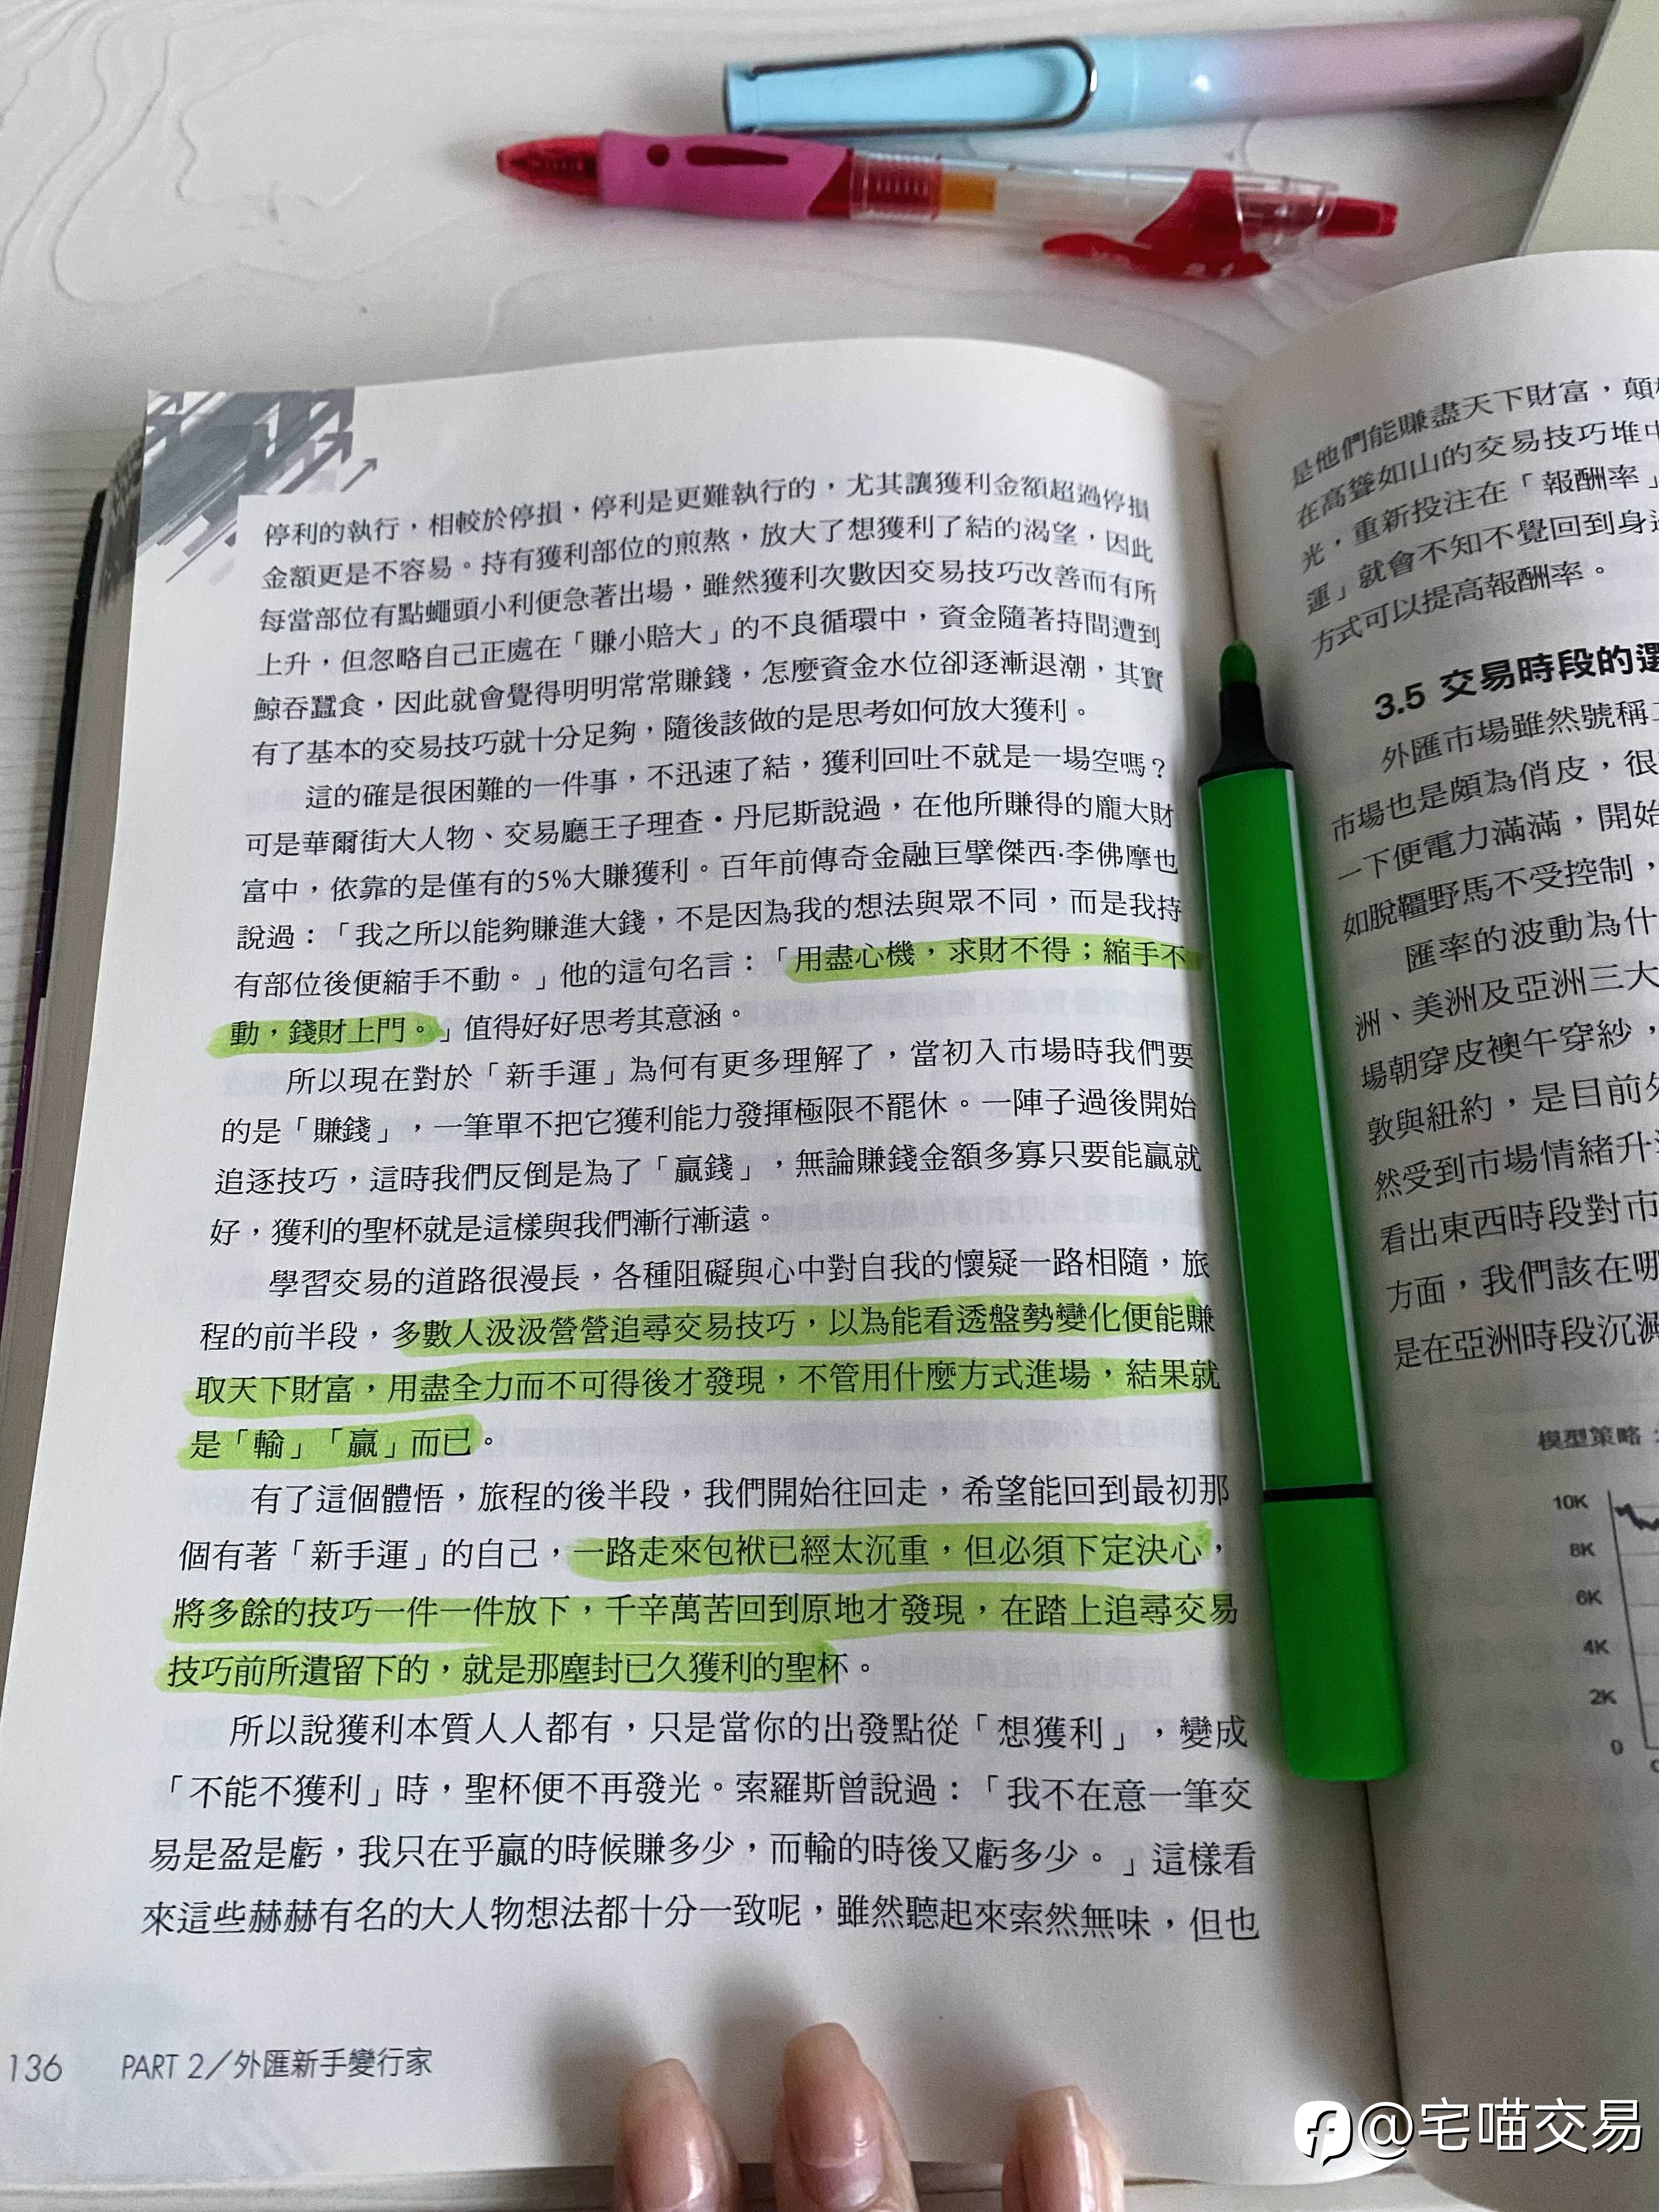 停利的執行，相較於停損，停利是更難執行的，尤其讓獲利金額超過停損
金額更是不容易。持有獲利部位的煎熬，放大了想獲利了結的渴望，因此
每當部位有點蠅頭小利便急著出場，雖然獲利次數因交易技巧改善而有所
上升，但忽略自己正處在「賺小賠大」的不良循環中，資金隨著持間遭到
鯨吞蠶食，因此就會覺得明明常常賺錢，怎麼資金水位卻逐漸退潮，其實
有了基本的交易技巧就十分足夠，隨後該做的是思考如何放大獲利。
這的確是很困難的一件事，不迅速了結，獲利回吐不就是一場空嗎？
可是華爾街大人物、交易廳王子理查・丹尼斯說過，在他所賺得的龐大財
富中，依靠的是僅有的5%大賺獲利。百年前傳奇金融巨擘傑西·李佛摩也
說過：「我之所以能夠賺進大錢，不是因為我的想法與眾不同，而是我持
有部位後便縮手不動。」他的這句名言：「用盡心機，求財不得；縮手不
動，錢財上門。」值得好好思考其意涵。
所以現在對於「新手運」為何有更多理解了，當初入市場時我們要
的是「賺錢」，一筆單不把它獲利能力發揮極限不罷休。一陣子過後開始
追逐技巧，這時我們反倒是為了「贏錢」，無論賺錢金額多寡只要能贏就
好，獲利的聖杯就是這樣與我們漸行漸遠。
學習交易的道路很漫長，各種阻礙與心中對自我的懷疑一路相隨，旅
程的前半段，多數人汲汲營營追尋交易技巧，以為能看透盤勢變化便能賺
取天下財富，用盡全力而不可得後才發現，不管用什麼方式進場，結果就
是「輸」「贏」而已。
有了這個體悟，旅程的後半段，我們開始往回走，希望能回到最初那
個有著「新手運」的自己，一路走來包袱已經太沉重，但必須下定決心，
將多餘的技巧一件一件放下，千辛萬苦回到原地才發現，在踏上追尋交易
技巧前所遺留下的，就是那塵封已久獲利的聖杯。
所以說獲利本質人人都有，只是當你的出發點從「想獲利」，變成
「不能不獲利」時，聖杯便不再發光。索羅斯曾說過：「我不在意一筆交
易是盈是虧，我只在乎贏的時候賺多少，而輸的時後又虧多少。」這樣看
來這些赫赫有名的大人物想法都十分一致呢，雖然聽起來索然無味，但也
136 PART 2／外匯新手變行家
是他們能賺盡天下財富，顛
在高聳如山的交易技巧堆中
光，重新投注在「報酬率」
運」就會不知不覺回到身
方式可以提高報酬率。
3.5 交易時段的選
外匯市場雖然號稱
市場也是頗為俏皮，很
一下便電力滿滿，開始
如脫韁野馬不受控制，
匯率的波動為什
洲、美洲及亞洲三大
場朝穿皮襖午穿紗，
敦與紐約，是目前外
然受到市場情緒升
看出東西時段對市
方面，我們該在哪
是在亞洲時段沉澱
模型策略
10K
8K
6K
4K
2K
0
@宅喵交易